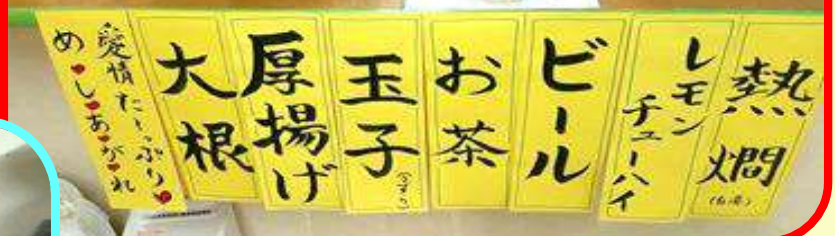 熱燗
レモン
チューハイ
ビール
お茶
玉子
厚揚げ
大根
愛情たーっぷり♥
め♥し♥あ♥が♥れ